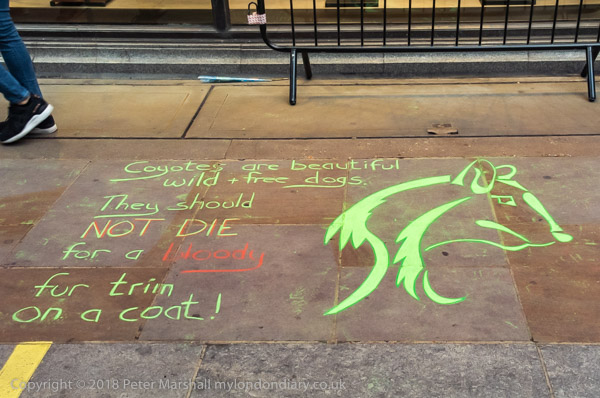 Coyotes are beautiful
wild + free dogs.
They should
NOT DIE
for a bloody
fur trim
on a coat!
Copyright © 2018 Peter Marshall mylondondiary.co.uk